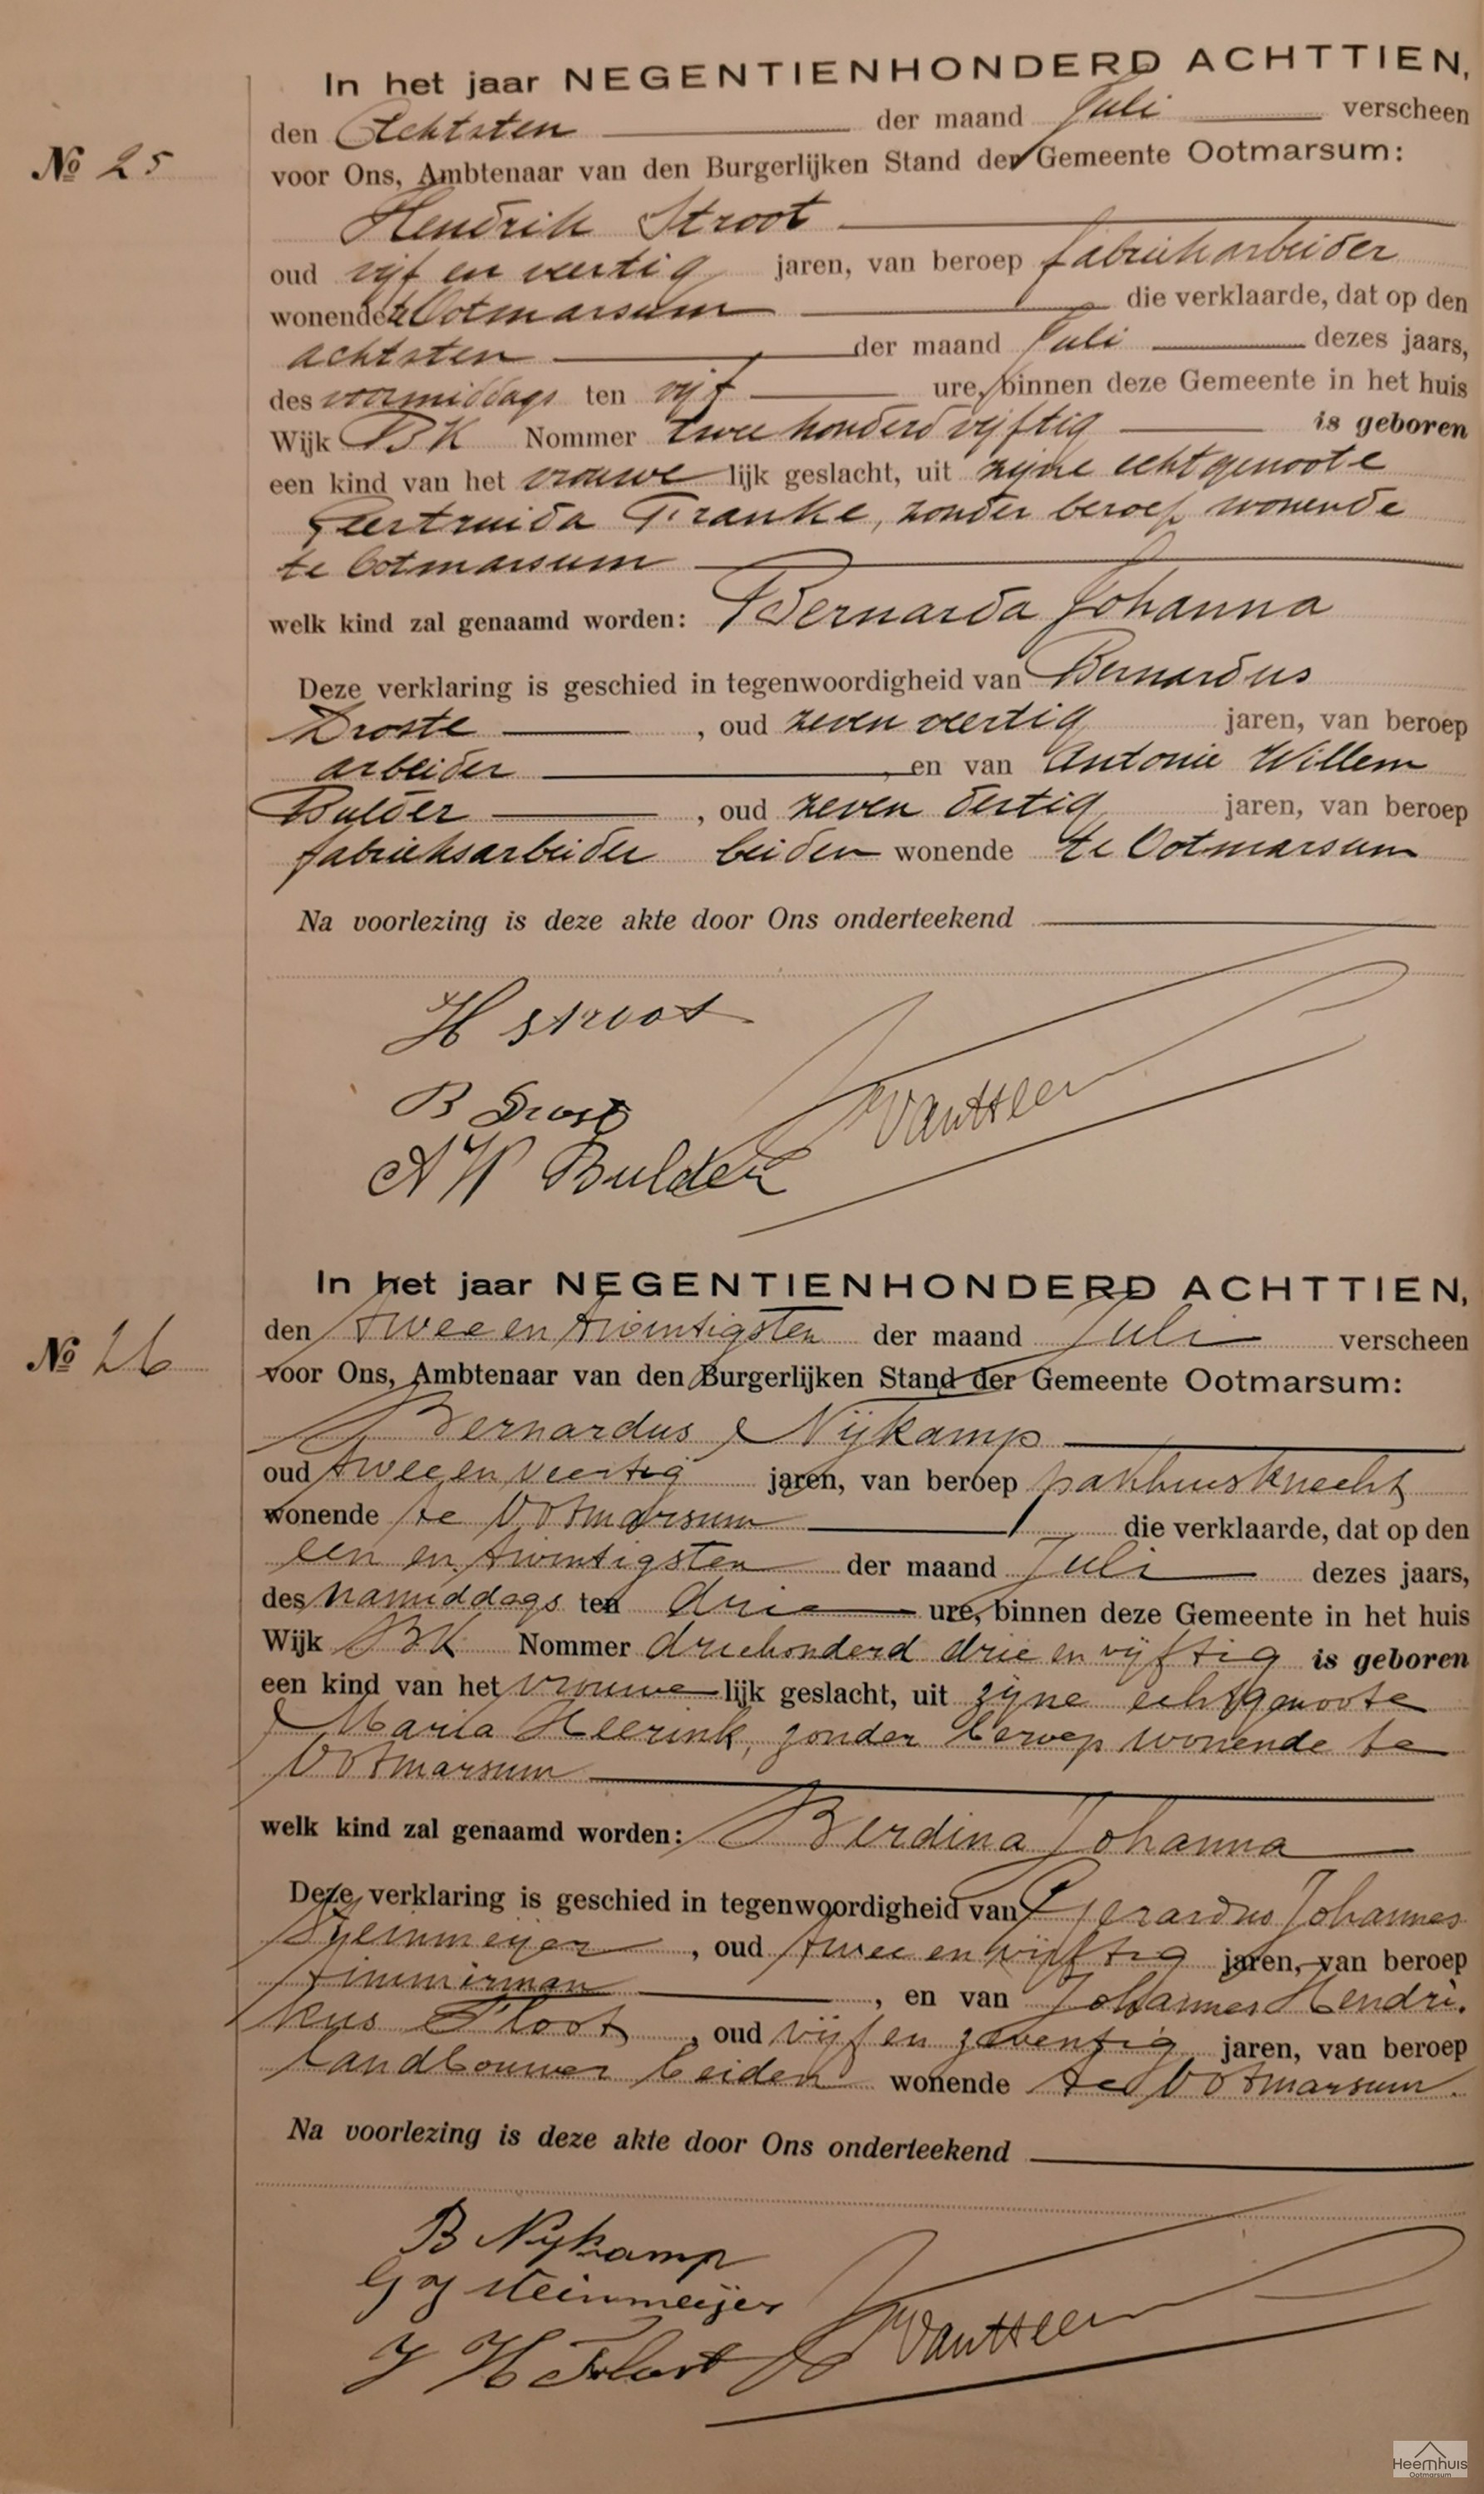 In het jaar NEGENTIENHONDERD ACHTTIEN,
den Achtsten der maand Juli verscheen
No 25
voor Ons, Ambtenaar van den Burgerlijken Stand der Gemeente Ootmarsum:
Hendrik Stroot
oud vijf en veertig jaren, van beroep fabriekarbeider
wonende te Ootmarsum die verklaarde, dat op den
achtsten der maand Juli dezes jaars,
des voormiddags ten vijf ure, binnen deze Gemeente in het huis
Wijk BK Nommer twee honderd vijftig is geboren
een kind van het vrouwe lijk geslacht, uit zijne echtgenoote
Geertruida Franke, zonder beroep wonende
te Ootmarsum
welk kind zal genaamd worden: Bernarda Johanna
Deze verklaring is geschied in tegenwoordigheid van Bernardus
Droste , oud zeven veertig jaren, van beroep
arbeider , en van Antonie Willem
Bulder , oud zeven dertig jaren, van beroep
fabrieksarbeider beiden wonende te Ootmarsum
Na voorlezing is deze akte door Ons onderteekend
H Stroot
B Drost
A W Bulder
In het jaar NEGENTIENHONDERD ACHTTIEN,
den twee en twintigsten der maand Juli verscheen
No 26
voor Ons, Ambtenaar van den Burgerlijken Stand der Gemeente Ootmarsum:
Bernardus Nijkamp
oud twee en veertig jaren, van beroep pakhuisknecht
wonende te Ootmarsum die verklaarde, dat op den
een en twintigsten der maand Juli dezes jaars,
des namiddags ten drie ure, binnen deze Gemeente in het huis
Wijk BK Nommer driehonderd drie en vijftig is geboren
een kind van het vrouwe lijk geslacht, uit zijne echtgenoote
Maria Heerink, zonder beroep wonende te
Ootmarsum
welk kind zal genaamd worden: Berdina Johanna
Deze verklaring is geschied in tegenwoordigheid van Gerardus Johannes
Steinmeijer , oud twee en vijftig jaren, van beroep
timmerman , en van Johannes Hendri.
kus Floot , oud vijf en zeventig jaren, van beroep
landbouwer beiden wonende te Ootmarsum.
Na voorlezing is deze akte door Ons onderteekend
B Nijkamp
G J Steinmeijer
J H Floot
Heemhuis
Ootmarsum